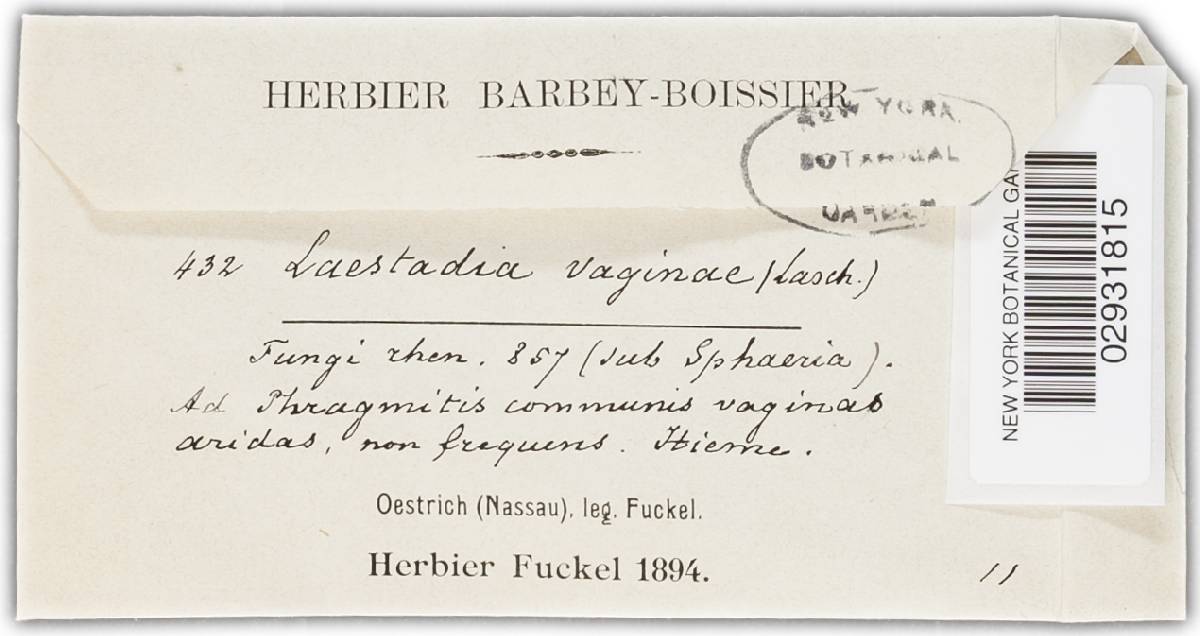 HERBIER BARBEY-BOISSIER
NEW YORK
BOTANICAL
GARDEN
432 Laestadia vaginae (Lasch.)
Fungi rhen. 857 (sub Sphaeria).
Ad Phragmitis communis vaginas
aridas, non frequens. Hieme.
Oestrich (Nassau), leg. Fuckel.
Herbier Fuckel 1894.
11
NEW YORK BOTANICAL GAR
02931815